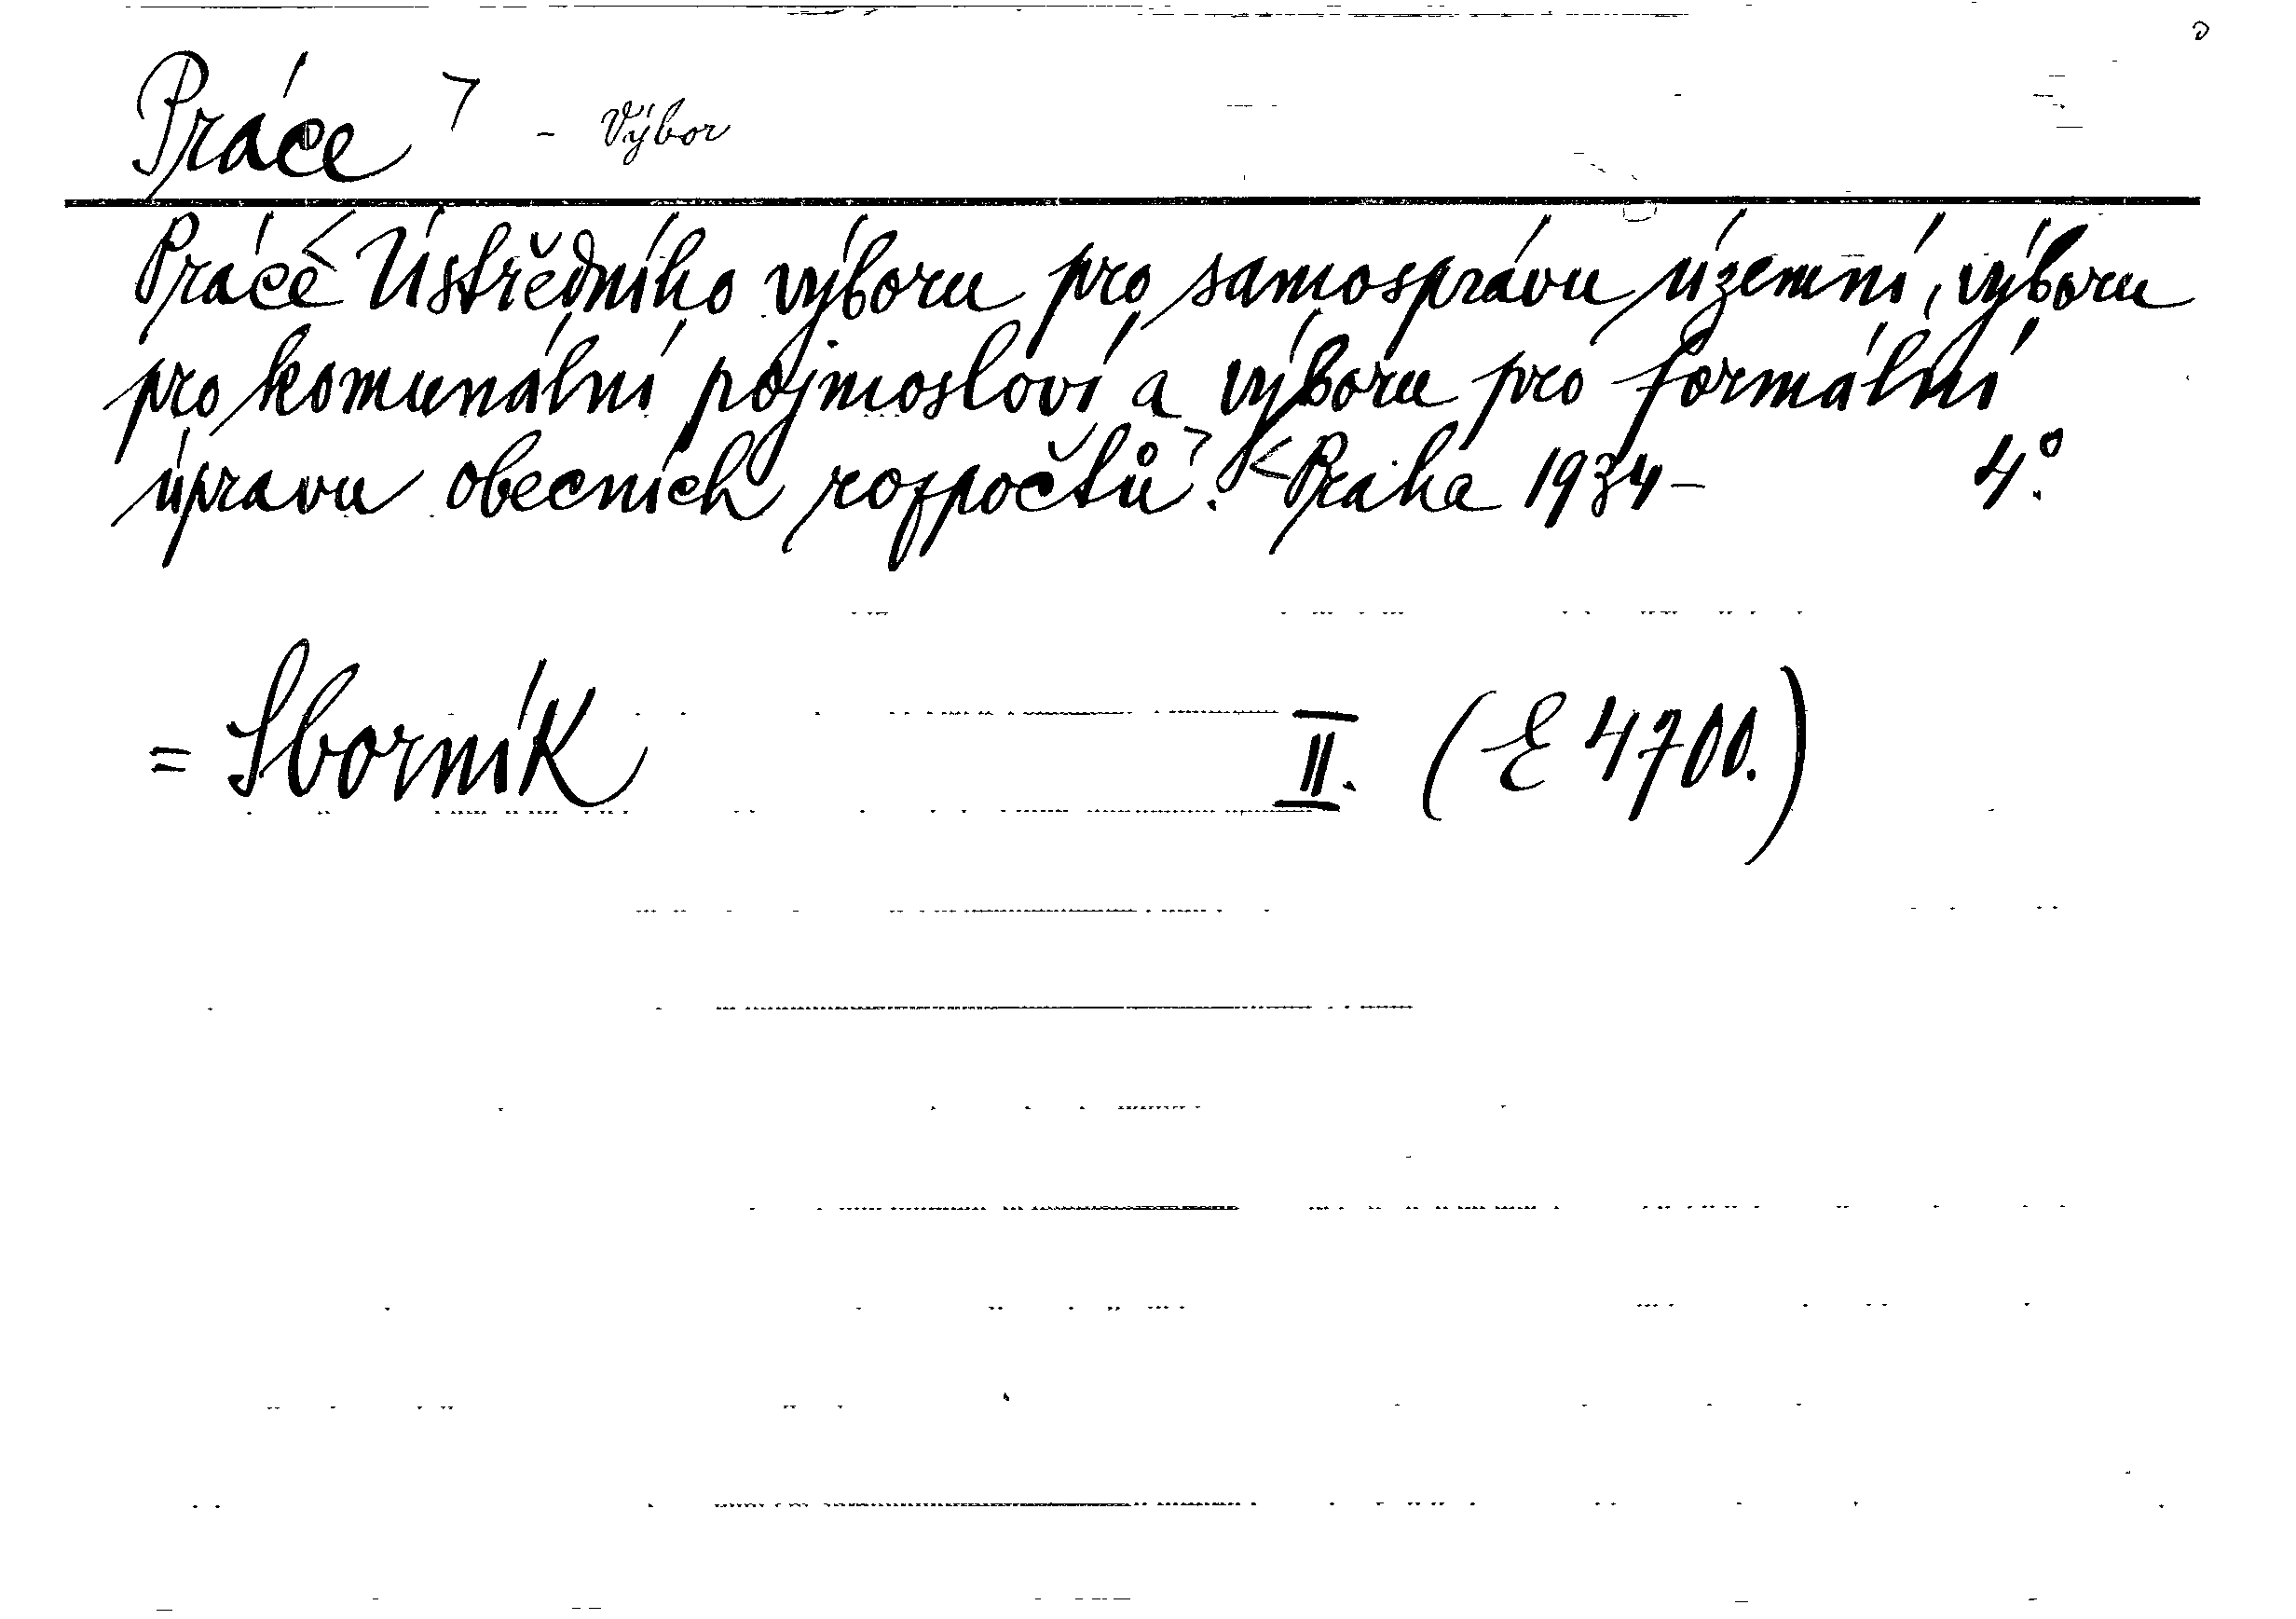 Práce ⁊ - Výbor
Práce < Ústředního výboru pro samosprávu územní, výboru
pro komunální pojmosloví a výboru pro formální
úpravu obecních rozpočtů ⁊. < Praha 1934 - 4°.
= Sborník II. (E 4700.)